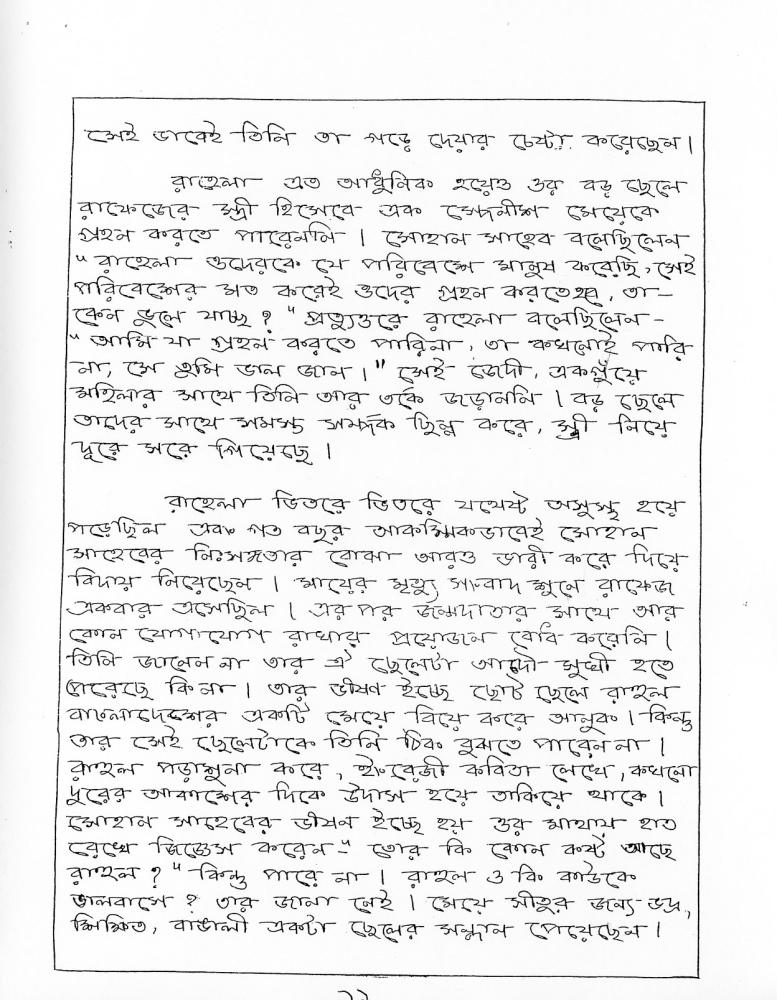 সেই ভাবেই তিনি তা গড়ে দেয়ার চেষ্টা করেছেন।
রাহেলা এত আধুনিক হয়েও ওর বড় ছেলে
রাফেজের স্ত্রী হিসেবে এক মেয়েকে
গ্রহন করতে পারেননি। সোহান সাহেব বলেছিলেন
" রাহেলা ওদেরকে যে পরিবেশে মানুষ করেছি, সেই
পরিবেশের মত করেই ওদের গ্রহন করতে হবে, তা-
কেন ভুলে যাচ্ছ? " প্রত্যুত্তরে রাহেলা বলেছিলেন -
" আমি যা গ্রহন করতে পারিনা, তা কখনোই পারি
না, সে তুমি ভাল জান। " সেই জেদী, একগুঁয়ে
মহিলার সাথে তিনি আর তর্কে জড়াননি। বড় ছেলে
তাদের সাথে সমস্ত সম্পর্ক ছিন্ন করে, স্ত্রী নিয়ে
দূরে সরে গিয়েছে।
রাহেলা ভিতরে ভিতরে যথেষ্ট অসুস্থ হয়ে
পড়েছিল এবং গত বছর আকস্মিকভাবেই সোহান
সাহেবের নিঃসঙ্গতার বোঝা আরও ভারী করে দিয়ে
বিদায় নিয়েছেন। মায়ের মৃত্যু সংবাদ শুনে রাফেজ
একবার এসেছিল। এর পর জন্মদাতার সাথে আর
কোন যোগাযোগ রাখার প্রয়োজন বোধ করেনি।
তিনি জানেন না তার ঐ ছেলেটা আদৌ সুখী হতে
পেরেছে কি না। তার ভীষণ ইচ্ছে ছোট ছেলে রাহুল
বাংলাদেশের একটি মেয়ে বিয়ে করে আনুক। কিন্তু
তার সেই ছেলেটাকে তিনি ঠিক বুঝতে পারেন না।
রাহুল পড়াশুনা করে, ইংরেজী কবিতা লেখে, কখনো
দূরের আকাশের দিকে উদাস হয়ে তাকিয়ে থাকে।
সোহান সাহেবের ভীষন ইচ্ছে হয় ওর মাথায় হাত
রেখে জিজ্ঞেস করেন - " তোর কি কোন কষ্ট আছে
রাহুল? " কিন্তু পারে না। রাহুল ও কি কাউকে
ভালবাসে? তার জানা নেই। মেয়ে মীতুর জন্য ভদ্র,
শিক্ষিত, বাঙালী একটা ছেলের সন্ধান পেয়েছেন।